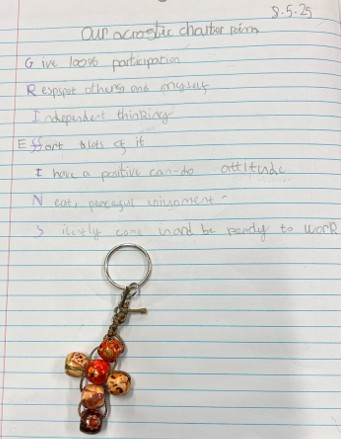 8.5.25
Our acrostic charter poem
Give 100% participation
Respspet others and myself
Independent thinking
Effort & lots of it
I have a positive can-do attitude
Neat, peaceful
Silently come in and be ready to work